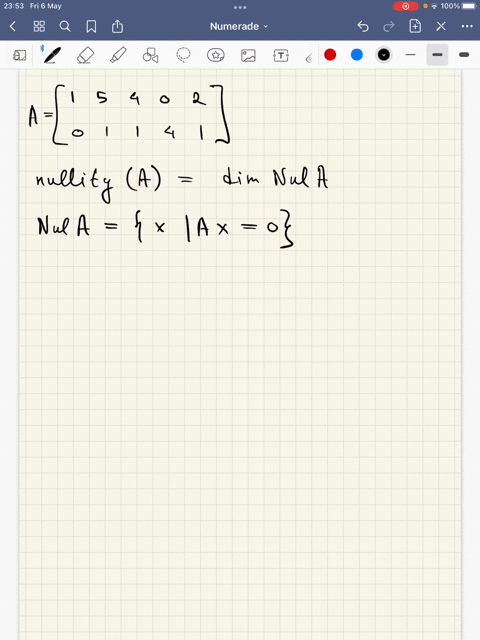 23:53 Fri 6 May 100%
Numerade
A = [ 1 5 4 0 2
0 1 1 4 1 ]
nullity (A) = dim Nul A
Nul A = { x | A x = 0 }